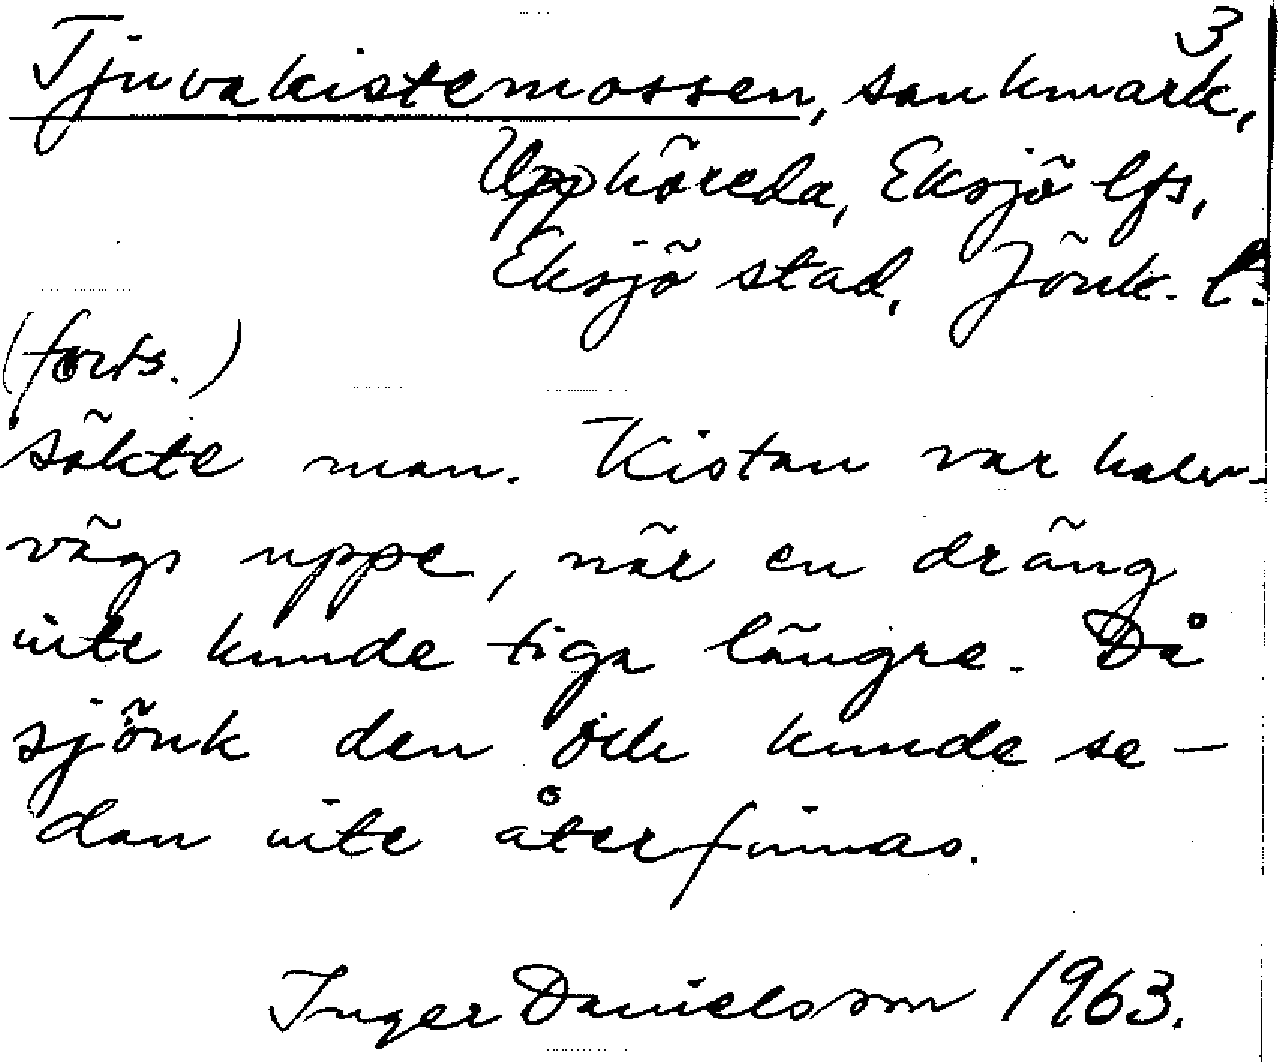 3
Tjuvakistemossen, sankmark,
Upphöreda, Eksjö lfs,
Eksjö stad, Jönk. l.
(forts.)
sökte man. Kistan var halv-
vägs uppe, när en dräng
inte kunde tiga längre. Då
sjönk den och kunde se-
dan inte återfinnas.
Inger Danielsson 1963.